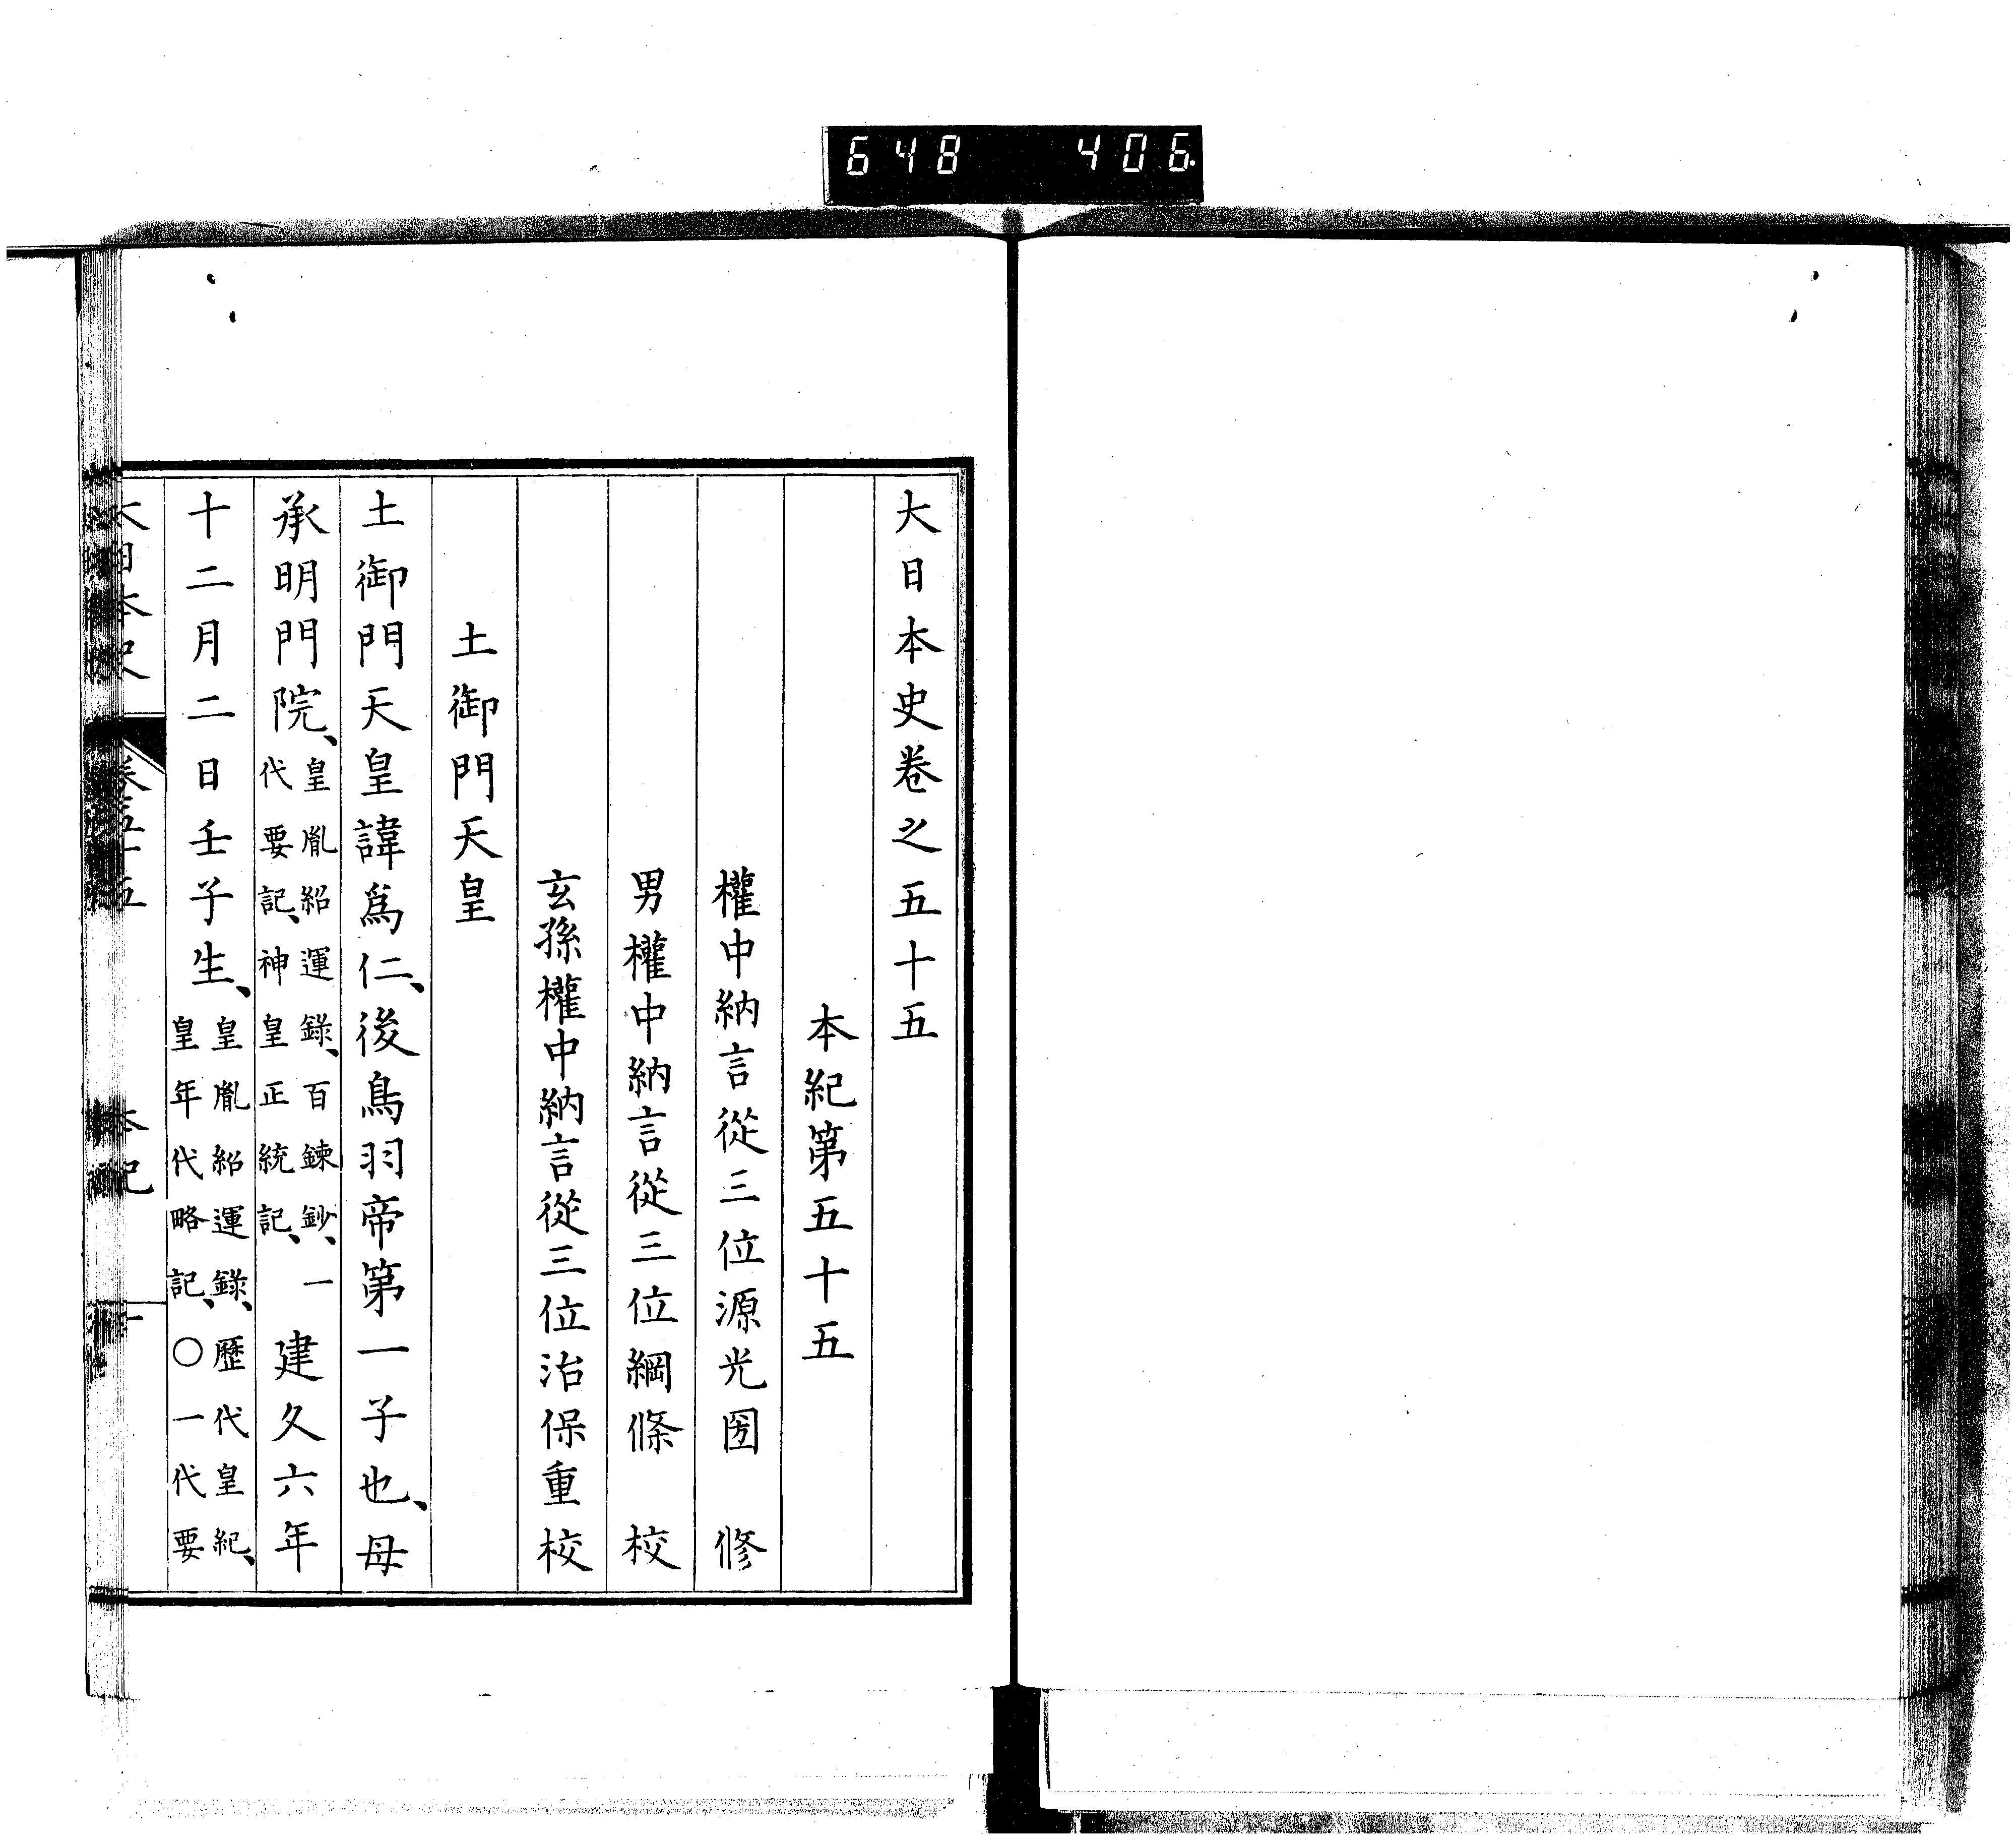 648 406.
大日本史卷之五十五
本紀第五十五
權中納言從三位源光圀 修
男權中納言從三位綱條 校
玄孫權中納言從三位治保重校
土御門天皇
土御門天皇諱爲仁、後鳥羽帝第一子也、母
承明門院、皇胤紹運錄、百鍊鈔、一代要記、神皇正統記、建久六年
十二月二日壬子生、皇胤紹運錄、歷代皇紀、皇年代略記、○一代要
大日本史 卷五十五 本紀 一